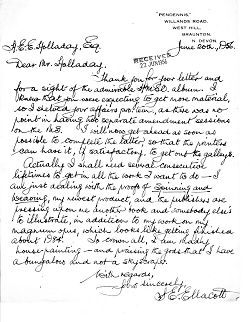 "PENDENNIS"
WILLANDS ROAD,
WEST HILL,
BRAUNTON,
N. DEVON
June 20th, 1956.
RECEIVED
21 JUN 1956
A.E.E. Holladay, Esq
Dear Mr. Holladay.
Thank you for your letter and
for a sight of the admirable MS. album. I
knew that you were expecting to get more material,
so I delayed your affairs protem, as there was no
point in having two separate amendment sessions
on the MS. I will now get ahead as soon as
possible to complete the latter, so that the printers
can have it, if satisfactory, to get out the galleys.
Actually I shall need several consecutive
lifetimes to get in all the work I want to do – I
am just dealing with the proofs of Spinning and
Weaving, my newest product, and the publishers are
pressing upon me another book and somebody else's
to illustrate, in addition to my work on my
magnum opus, which looks like getting finished
about 1984. To crown all, I am busy
housepainting – and praising the gods that I have
a bungalow and not a skyscraper.
With regards,
Yours sincerely,
S.E. Ellacott